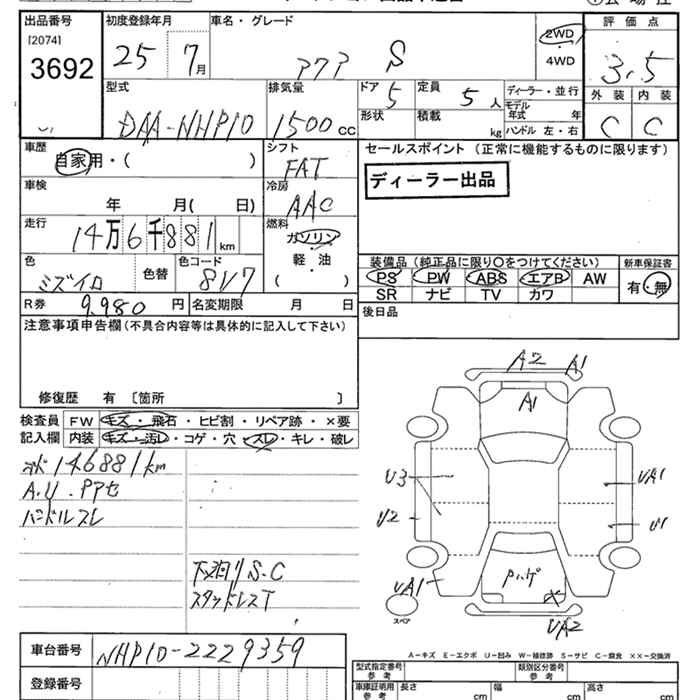 出品番号 初度登録年月 車名・グレード 評価点
[2074]
3692 25 7月 アクア S 2WD・4WD 3.5
型式 排気量 ドア 定員 ディーラー・並行 外装 内装
DAA-NHP10 1500cc 5 5人 モデル年式 年 C C
形状 積載 kg ハンドル 左・右
車歴 シフト セールスポイント (正常に機能するものに限ります)
自家用・( ) FAT ディーラー出品
車検 冷房
年 月( 日) AAC
走行 燃料
14万6千881km ガソリン
軽・油
( )
色 色替 色コード 装備品(純正品に限り〇をつけてください) 新車保証書
ミズイロ 8V7 PS PW ABS エアB AW 有・無
SR ナビ TV カワ
R券 9,980円 名変期限 月 日
後日品
注意事項申告欄(不具合内容等は具体的に記入して下さい)
修復歴 有 [箇所 ]
検査員記入欄 FW キズ・飛石・ヒビ割・リペア跡・×要
内装 キズ・汚レ・コゲ・穴・スレ・キレ・破レ
146881km
A.U.Pアセ
ハンドルスレ
下廻りS.C
スタッドレスT
A2 A1
A1
U3 UA1
U2 U1
Pハゲ ×
UA1
スペア
UA2
車台番号 NHP10-2229359
登録番号
A-キズ E-エクボ U-凹み W-補修跡 S-サビ C-腐食 ××-交換済
型式指定番号 参考 類別区分番号 参考
車庫証明用 参考 長さ cm 幅 cm 高さ cm